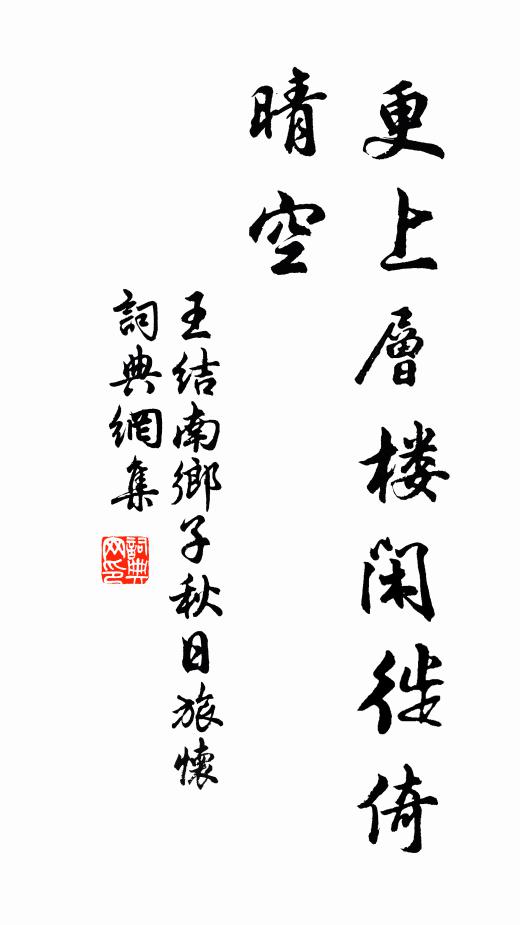 更上層楼閑徙倚
晴空
王结南鄉子秋日旅懷
詞典網集
詞典
网印